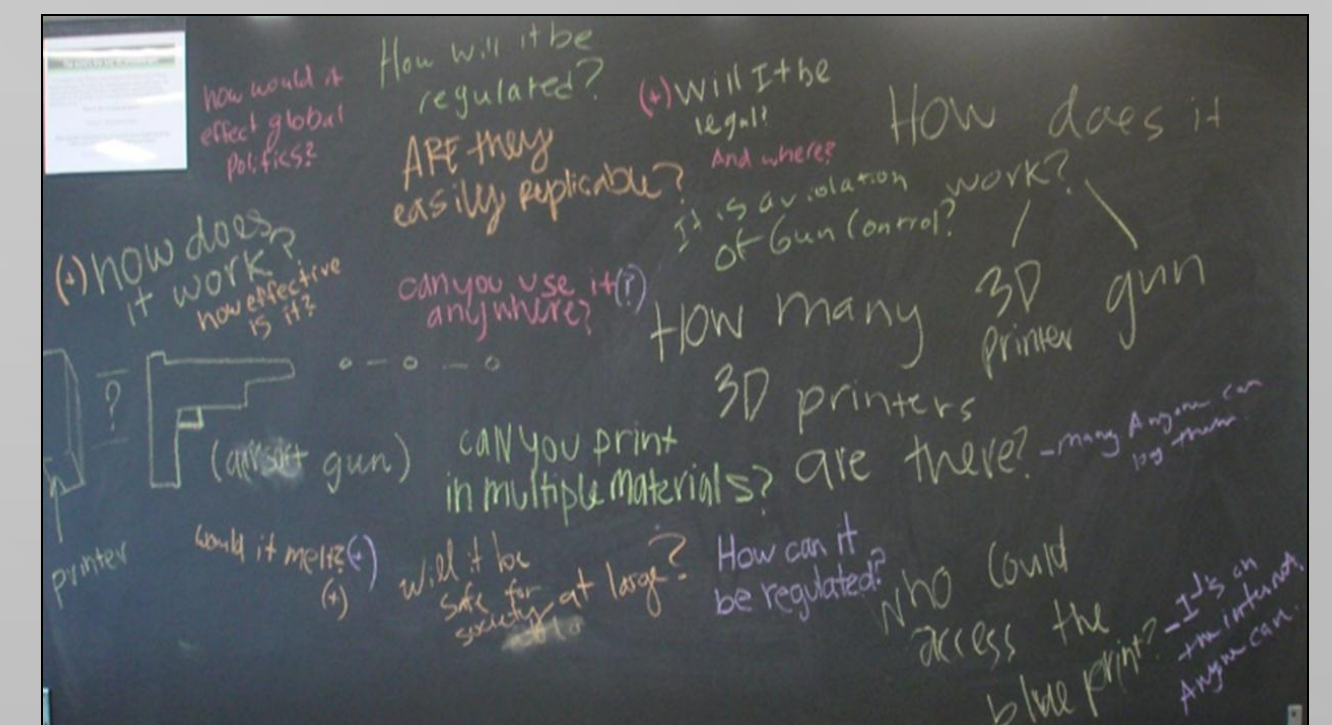 how would it
effect global
Politics?
How will it be
regulated?
ARE they
easily Replicable?
(+) Will It be
legal?
And where?
How does it
work?
3D
printer
gun
It is a violation
of Gun Control?
(+) how does
it work?
how effective
is it?
can you use it (?)
anywhere?
How many
3D printers
are there?
- many Anyone can
?
(airsoft gun)
printer
can you print
in multiple materials?
would it melt? (+)
(+)
will it be
safe for
society at large?
How can it
be regulated?
who could
access the
blue print?
- It's on
the internet.
Anyone can.